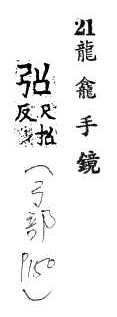 21龍龕手鏡
弨尺招
反
(弓部 P150)